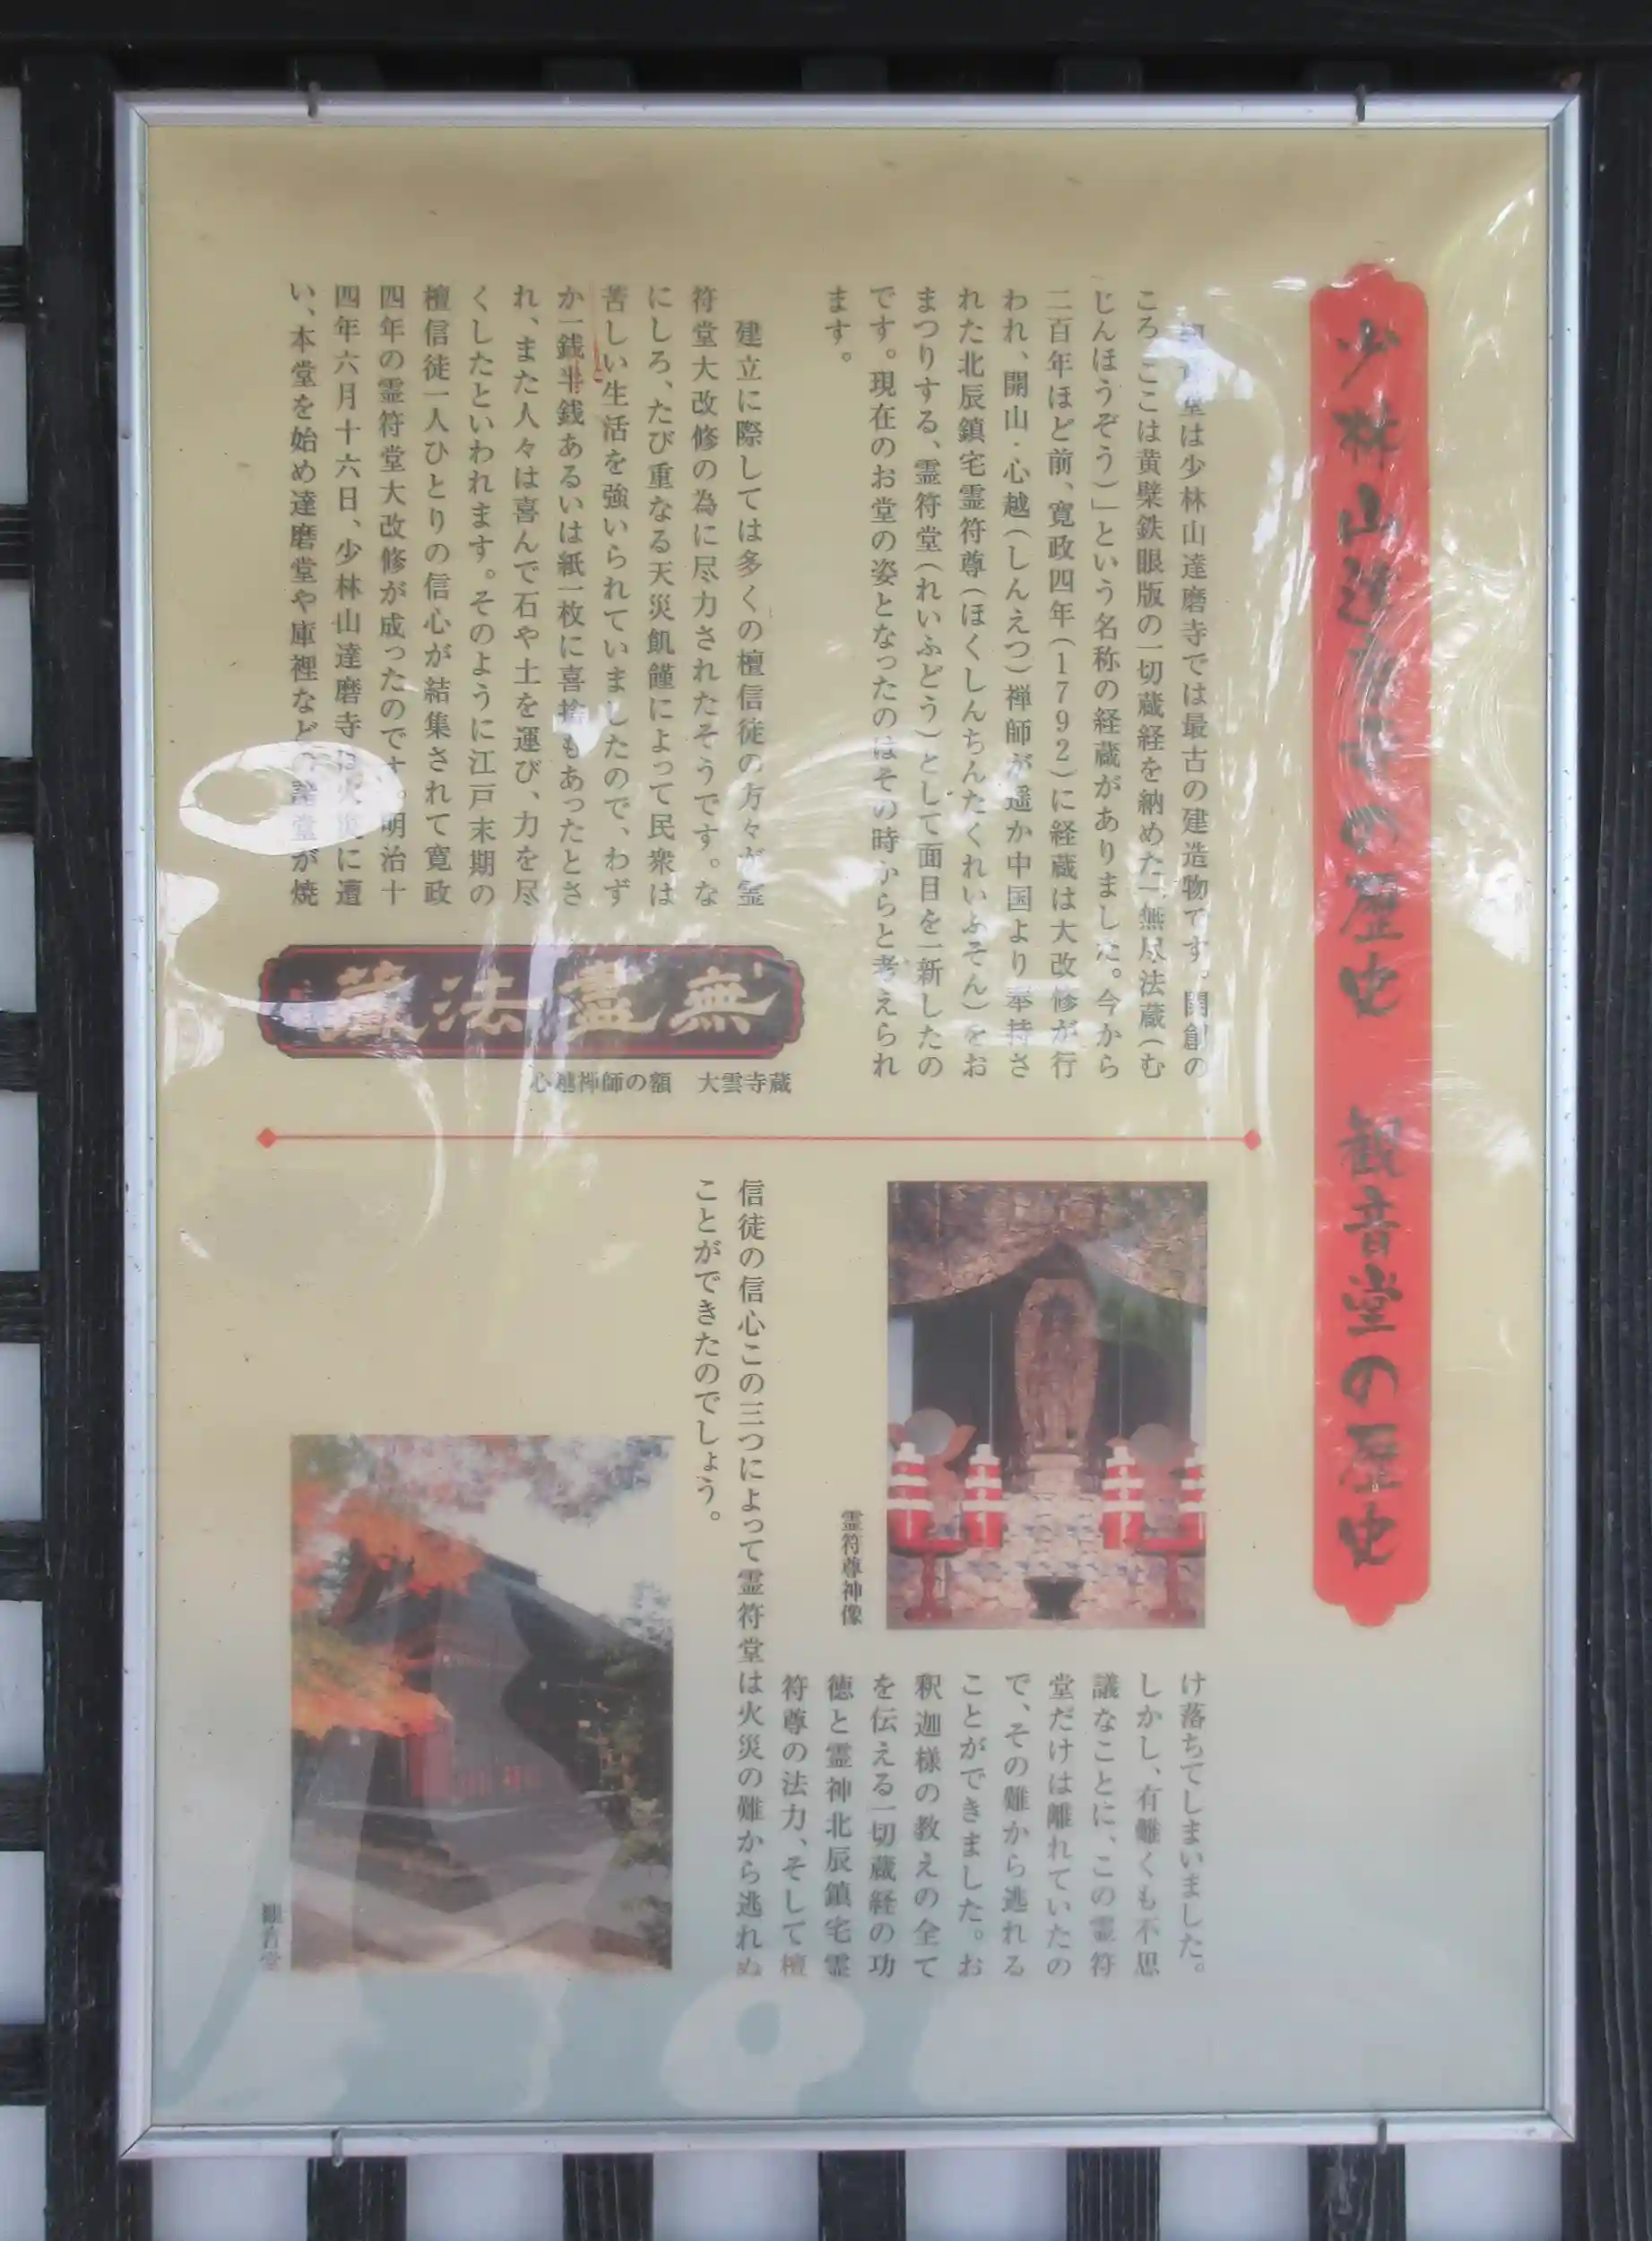 少林山達磨寺の歴史 観音堂の歴史
堂は少林山達磨寺では最古の建造物です。開創の
ころ ここは黄檗鉄眼版の一切蔵経を納めた「無尽法蔵(む
じんほうぞう)」という名称の経蔵がありました。今から
二百年ほど前、寛政四年(1792)に経蔵は大改修が行
われ、開山・心越(しんえつ)禅師が遥か中国より奉持さ
れた北辰鎮宅霊符尊(ほくしんちんたくれいふそん)をお
まつりする、霊符堂(れいふどう)として面目を一新したの
です。現在のお堂の姿となったのはその時からと考えられ
ます。
建立に際しては多くの檀信徒の方々が霊
符堂大改修の為に尽力されたそうです。な
にしろ、たび重なる天災飢饉によって民衆は
苦しい生活を強いられていましたので、わず
か一銭半銭あるいは紙一枚に喜捨もあったとさ
れ、また人々は喜んで石や土を運び、力を尽
くしたといわれます。そのように江戸末期の
檀信徒一人ひとりの信心が結集されて寛政
四年の霊符堂大改修が成ったのです。明治十
四年六月十六日、少林山達磨寺は火災に遭
い、本堂を始め達磨堂や庫裡などの諸堂が焼
無盡法藏
心越禅師の額 大雲寺蔵
霊符尊神像
け落ちてしまいました。
しかし、有難くも不思
議なことに、この霊符
堂だけは離れていたの
で、その難から逃れる
ことができました。お
釈迦様の教えの全て
を伝える一切蔵経の功
徳と霊神北辰鎮宅霊
符尊の法力、そして檀
信徒の信心この三つによって霊符堂は火災の難から逃れぬ
ことができたのでしょう。
観音堂